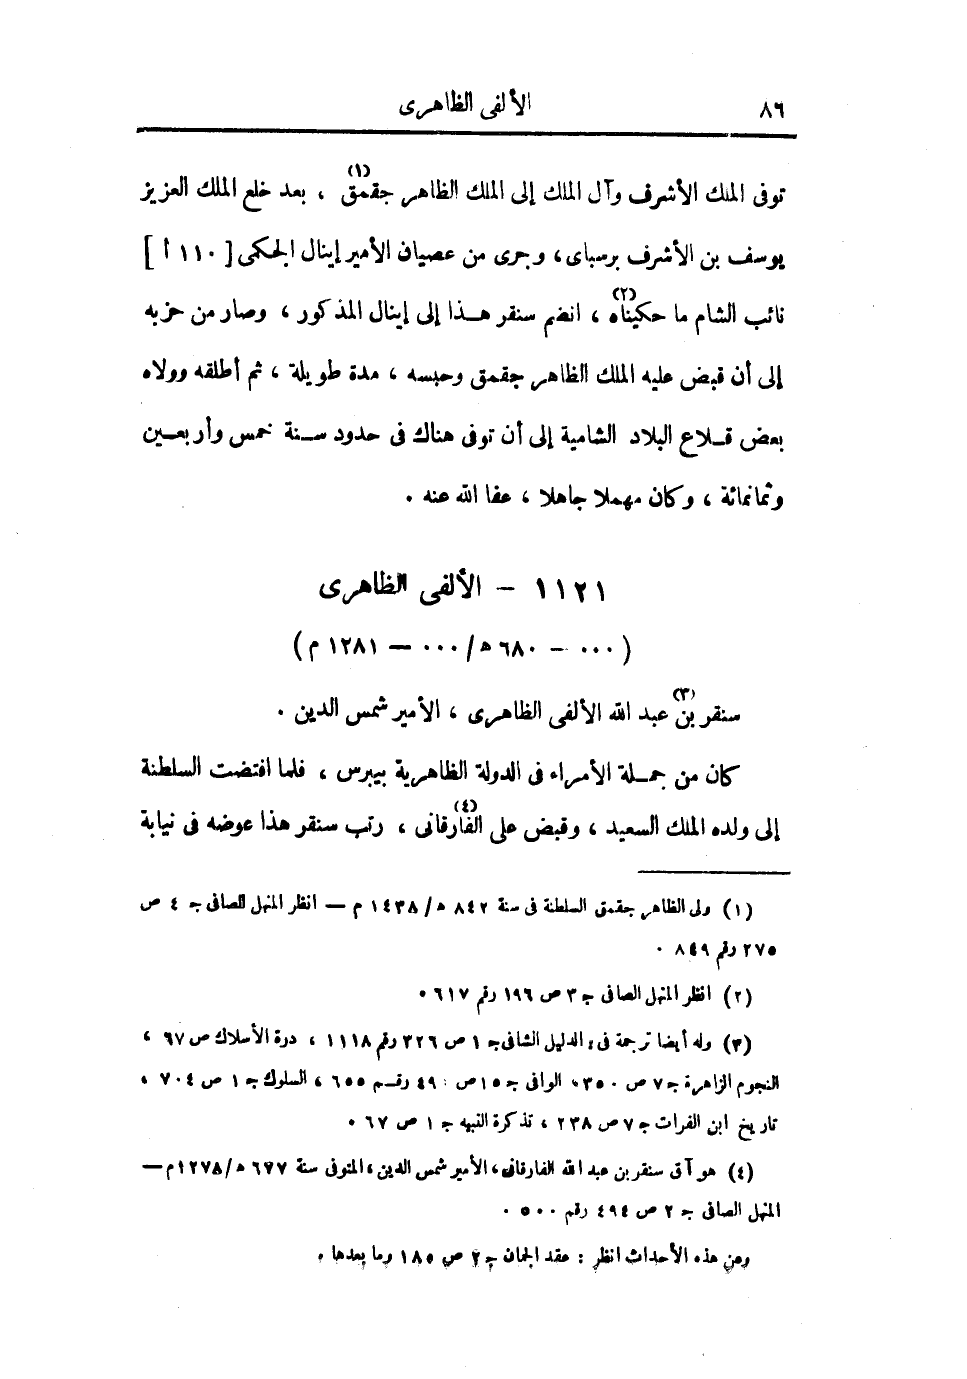 ٨٦ الألفى الظاهرى
توفى الملك الأشرف وآل الملك إلى الملك الظاهر جقمق (١) ، بعد خلع الملك العزيز
يوسف بن الأشرف برسباى ، وجرى من عصيان الأمير إينال الجكمى [ ١١٠ أ ]
نائب الشام ما حكيناه (٢) ، انضم سنقر هـذا إلى إينال المذكور ، وصار من حزبه
إلى أن قبض عليه الملك الظاهر جقمق وحبسه ، مدة طويلة ، ثم أطلقه وولاه
بعض قـلاع البلاد الشامية إلى أن توفى هناك فى حدود سـنة خمس وأربعـين
وثمانمائة ، وكان مهملا جاهلا ، عفا الله عنه .
١١٢١ - الألفى الظاهرى
( ٠٠٠ - ٦٨٠ ه / ٠٠٠ - ١٢٨١ م )
سنقر بن (٣) عبد الله الألفى الظاهرى ، الأمير شمس الدين .
كان من جمـلة الأمراء فى الدولة الظاهرية بيبرس ، فلما افتضت السلطنة
إلى ولده الملك السعيد ، وقبض على الفارقانى (٤) ، رتب سنقر هذا عوضه فى نيابة
(١) ولى الظاهر جقمق السلطنة فى سنة ٨٤٢ ه / ١٤٣٨ م — انظر المنهل الصافى ج ٤ ص
٢٧٥ رقم ٨٤٩ .
(٢) انظر المنهل الصافى ج ٣ ص ١٩٦ رقم ٦١٧ .
(٣) وله أيضا ترجمة فى : الدليل الشافى ج ١ ص ٣٢٦ رقم ١١١٨ ، درة الأسلاك ص ٦٧ ،
النجوم الزاهرة ج ٧ ص ٣٥٠ ، الوافى ج ١٥ ص : ٤٩ رقـم ٦٥٥ ، السلوك ج ١ ص ٧٠٤ ،
تاريخ ابن الفرات ج ٧ ص ٢٣٨ ، تذكرة النبيه ج ١ ص ٦٧ .
(٤) هو آق سنقر بن عبد الله الفارقانى ، الأمير شمس الدين ، المتوفى سنة ٦٧٧ ه / ١٢٧٨ م —
المنهل الصافى ج ٢ ص ٤٩٤ رقم ٥٠٠ .
وعن هذه الأحداث انظر : عقد الجمان ج ٢ ص ١٨٥ وما بعدها .